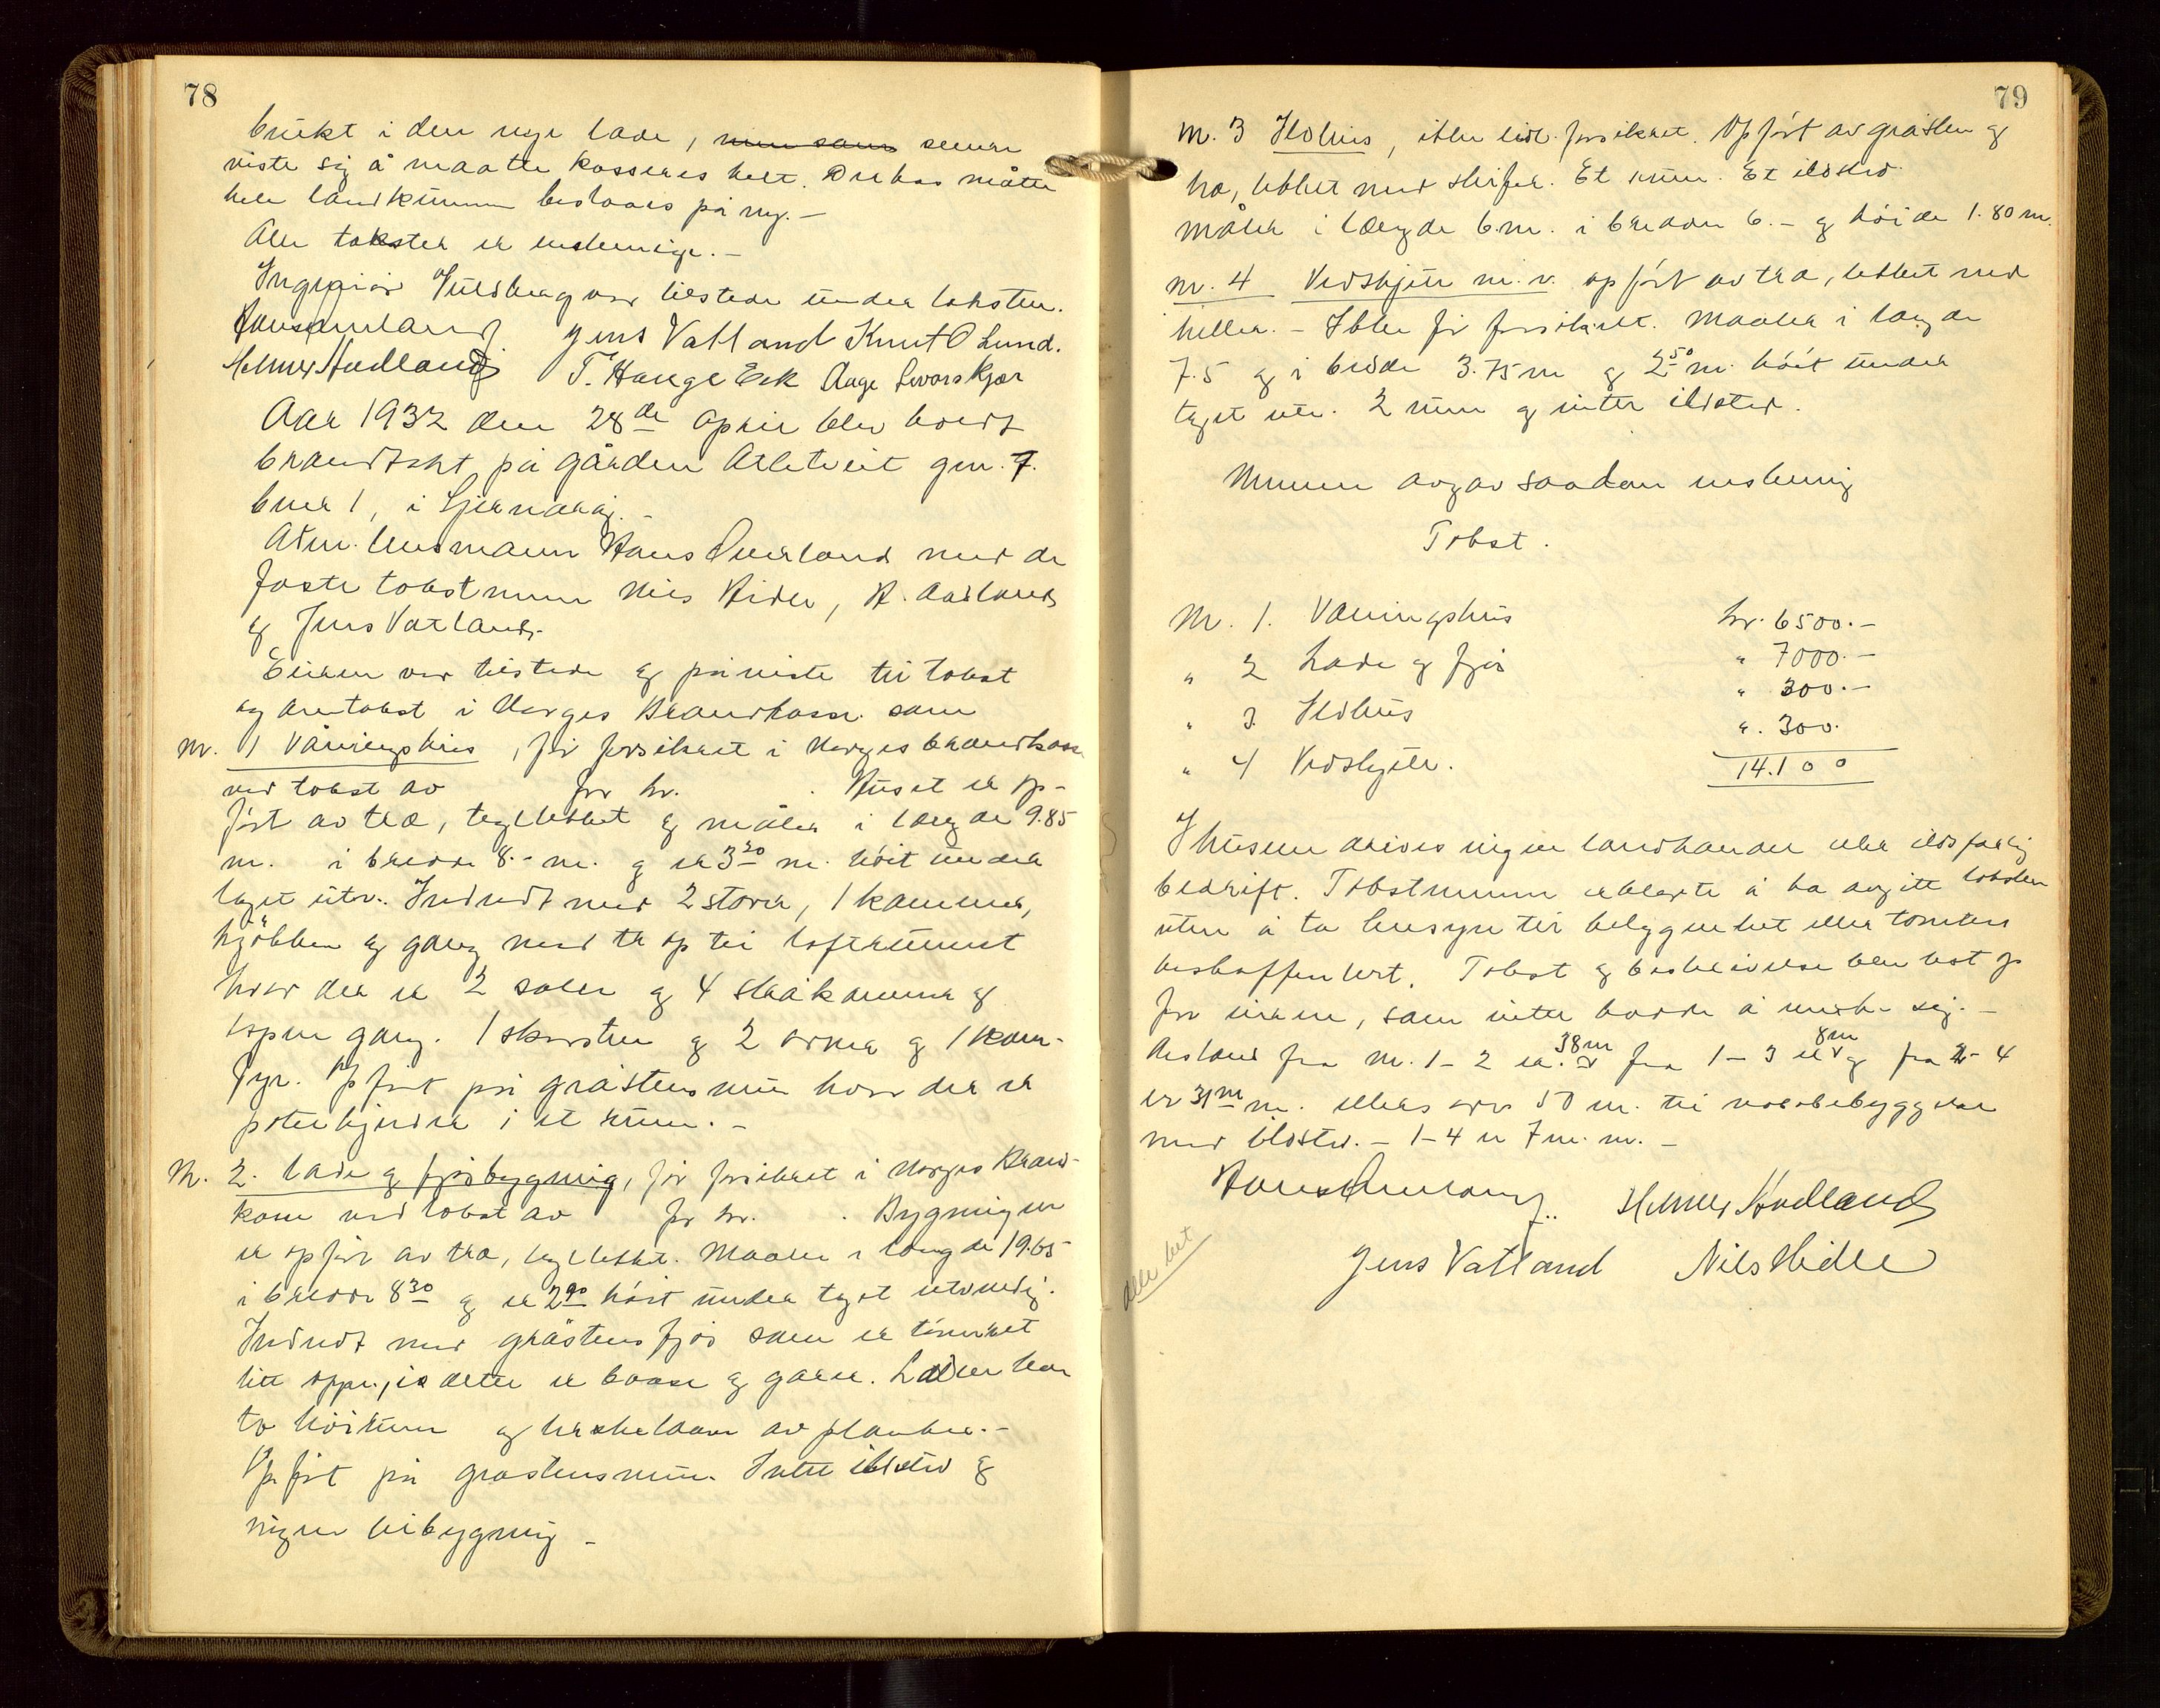 78
brukt i den nye lade, men som senere
viste sig å maatte kasseres helt. Derhos måtte
hele
Alle takster er enstemmige. –
Ingeniør Fuldberg var tilstede under taksten.
Hans Overland Jens Vatland Knut O Lund.
Helmer Hodland T. Hauge Eek Aage Svorskjær
Aar 1932 den 28de april blev holdt
brandtakst på gården Atletveit gnr. 7.
bnr 1, i Sjernarøy. –
Adm. lensmann Hans Overland med de
faste takstmenn Nils Hidle, H. Aadland
og Jens Vatland.
Eieren var tilstede og påviste til takst
og omtakst i Norges Brandkasse som
Nr. 1 Våningshus, før forsikret i Norges brandkasse
ved takst av for kr. . Huset er op-
ført av træ, tegltekket og måler i længde 9.85
m. i bredde 8.- m. og er 3.20 m. høit under
taget utv. Indredt med 2 stover, 1 kammer,
kjøkken og gang med trap til loftrummet
hvor der er 2 saler og 4 skråkammer og
åpen gang. 1 skorsten og 2 ovner og 1 kom-
fyr. Opført på gråstensmur hvor der er
potetkjelder i et rum. –
Nr. 2. Lade og fjøsbygning, før forsikret i Norges Brand-
kasse ved takst av for kr. . Bygningen
er opført av træ, tegltekket. Maaler i længde 19.65
i bredde 8.30 og er 2.90 høit under taget utvendig.
Indredt med gråstens fjøs som er tømret
litt oppe, i dette er baase og gaare. Laden har
to høirum og treskelaave av planker. –
Opført på gråstensmur. Intet ildsted og
ingen tilbygning –
79
Nr. 3 Ildhus, ikke tidl. forsikret. Opført av gråsten og
træ, tekket med skifer. Et rum. Et ildsted.
Måler i længde 6 m. i bredden 6.– og høide 1.80 m.
Nr. 4 Vedskjul m.v. opført av træ, tekket med
heller. – Ikke før forsikret. Maaler i længde
7.5 og i bredde 3.75 m og 2.50 m. høit under
taget utv. 2 rum og intet ildsted.
Mennene avgav saadan enstemmig
Takst.
Nr. 1. Våningshus kr. 6500.–
" 2 Lade og fjøs " 7000.–
" 3. Ildhus " 300.–
" 4 Vedskjul. " 300.
14.100
I husene drives ingen landhandel eller ildsfarlig
bedrift. Takstmennene erklærte å ha avgitt taksten
uten å ta hensyn til beliggenhet eller tomtens
beskaffenhet. Takst og beskrivelse blev lest op
for eieren, som intet hadde å merke sig. –
Avstand fra Nr. 1–2 er. 38 m fra 1–3 er 8 m og fra 2–4
er 31 m m. ellers over 50 m. til nabobebyggelse
med ildsted. – 1–4 er 7 m. m. –
Hans Overland. Helmer Hodland
Jens Vatland Nils Hidle